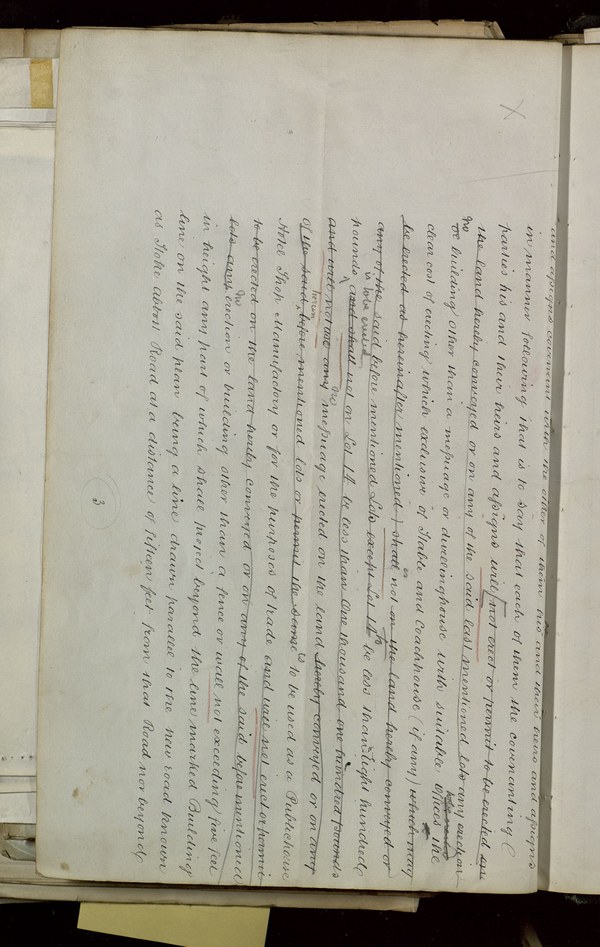 and assigns covenant with the other of them his and their heirs and assigns
in manner following that is to say that each of them the covenanting
parties his and their heirs and assigns will not erect or permit to be erected on
the land hereby conveyed or on any of the said last mentioned lots any erection
no
or building other than a messuage or dwellinghouse with suitable offices the
clear cost of erecting which exclusive of Stable and Coachhouse (if any) which may
be erected as hereinafter mentioned) shall not on the land hereby conveyed or
any of the said before mentioned Lots except Lot 14 be less than Eight hundred
is to be erected
pounds and shall not on Lot 14 be less than One thousand one hundred pounds
and will not use any messuage erected on the land hereby conveyed or on any
no
of the said before mentioned lots or permit the same to be used as a Publichouse
herein
is
Hotel Shop Manufactory or for the purposes of trade and will not erect or permit
to be erected on the land hereby conveyed or on any of the said before mentioned
lots any erection or building other than a fence or wall not exceeding five feet
no
in height any part of which shall project beyond the line marked Building
line on the said plan being a line drawn parallel to the new road known
as Stoke Abbott Road at a distance of fifteen feet from that Road nor beyond
3